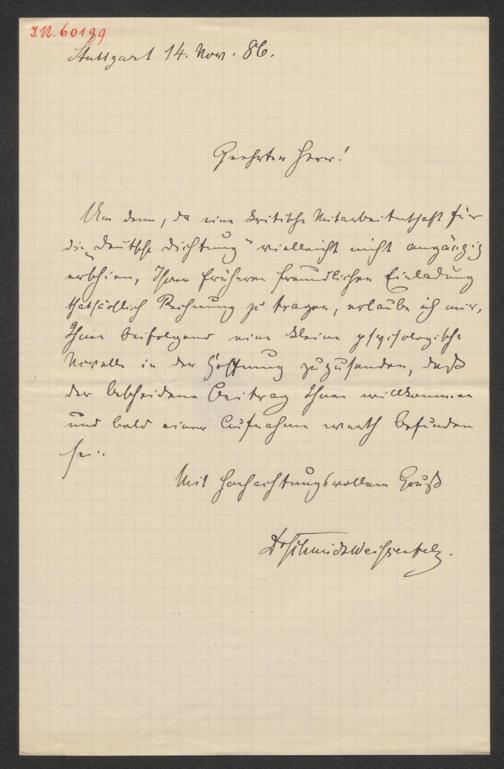 I.N. 60199
Stuttgart 14. Nov. 86.
Geehrter Herr!
Um denn, da eine kritische Mitarbeiterschaft für
die „Deutsche Dichtung“ vielleicht nicht angängig
erschien, Ihrer früheren freundlichen Einladung
thatsächlich Rechnung zu tragen, erlaube ich mir,
Ihnen beifolgend eine kleine psychologische
Novelle in der Hoffnung zuzusenden, daß
der bescheidene Beitrag Ihnen willkommen
und bald einer Aufnahme werth befunden
sei.
Mit hochachtungsvollem Gruß
Dr Schmidt-Weißenfels.